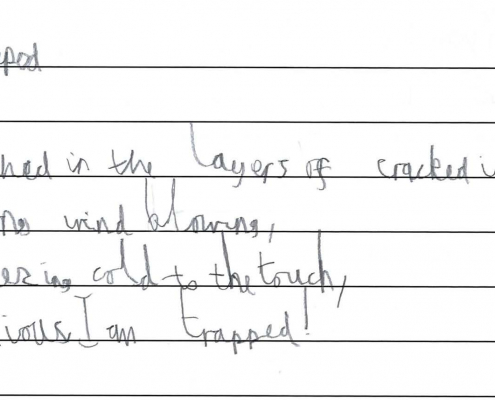 pod
hed in the layers of cracked i
ng wind blowing,
ezing cold to the touch,
ious I am trapped!